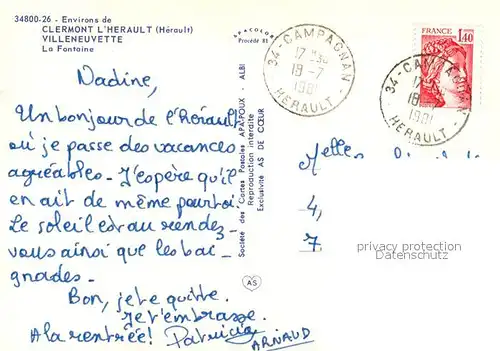 34800-26 - Environs de
CLERMONT L'HERAULT (Hérault)
VILLENEUVETTE
La Fontaine
APACOLOR
Procédé 81
Société des Cartes Postales APA-POUX - ALBI
Reproduction interdite
Exclusivité AS DE CŒUR
AS
34 - CAMPAGNAN -
17 H30
18 - 7
1981
HERAULT
FRANCE
1,40
34 - CAMPAGNAN
17
18
1981
HERAULT -
Nadine,
Un bonjour de l'hérault
où je passe des vacances
agréables - J'espère qu'il
en ait de même pour toi.
Le soleil est au rendez-
vous ainsi que les bai-
gnades -
Bon, je te quitte.
Je t'embrasse.
A la rentrée! Patricia
ARNAUD
Melles
4,
7
privacy protection
Datenschutz